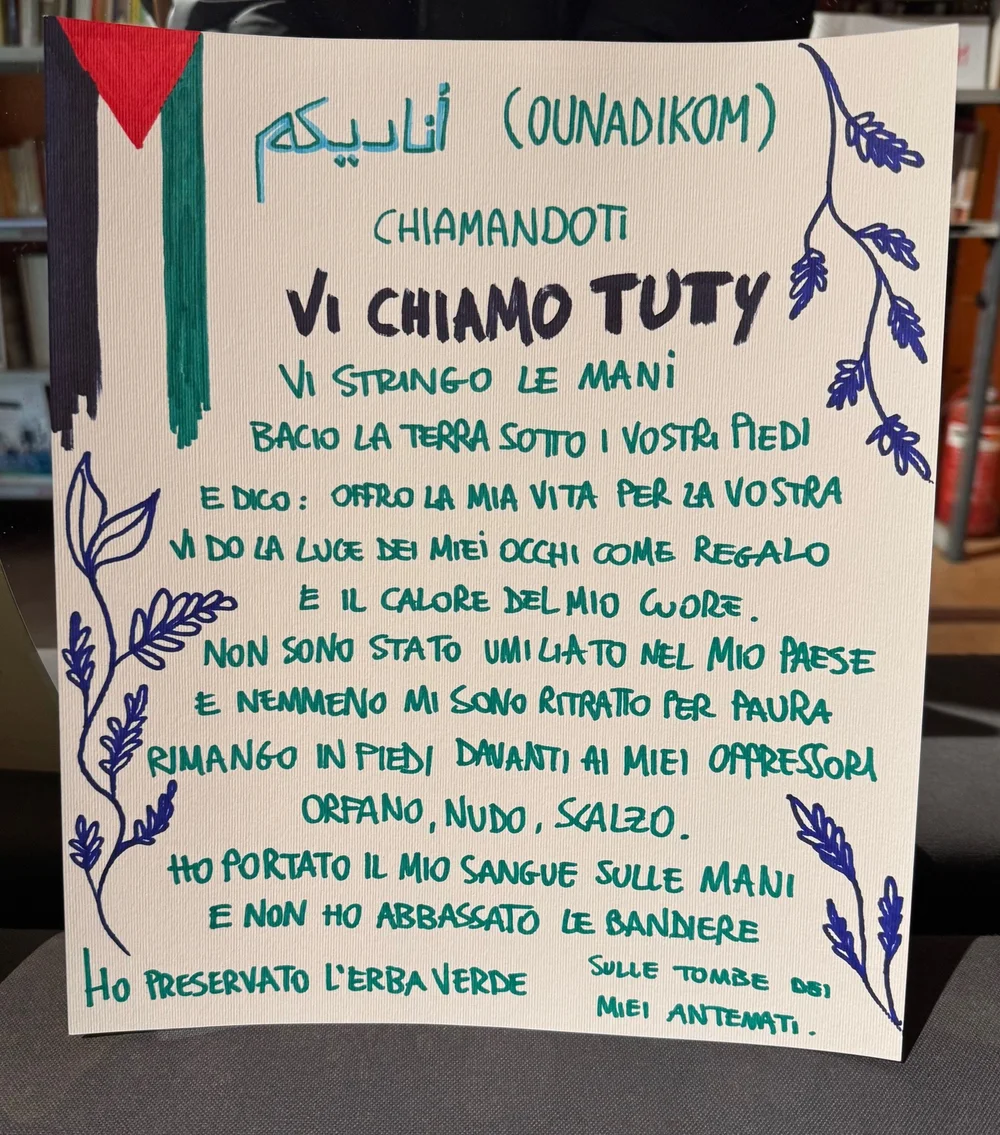 أناديكم (OUNADIKOM)
CHIAMANDOTI
VI CHIAMO TUTTY
VI STRINGO LE MANI
BACIO LA TERRA SOTTO I VOSTRI PIEDI
E DICO: OFFRO LA MIA VITA PER LA VOSTRA
VI DO LA LUCE DEI MIEI OCCHI COME REGALO
E IL CALORE DEL MIO CUORE.
NON SONO STATO UMILIATO NEL MIO PAESE
E NEMMENO MI SONO RITRATTO PER PAURA
RIMANGO IN PIEDI DAVANTI AI MIEI OPPRESSORI
ORFANO, NUDO, SCALZO.
HO PORTATO IL MIO SANGUE SULLE MANI
E NON HO ABBASSATO LE BANDIERE
HO PRESERVATO L'ERBA VERDE
SULLE TOMBE DEI
MIEI ANTENATI.